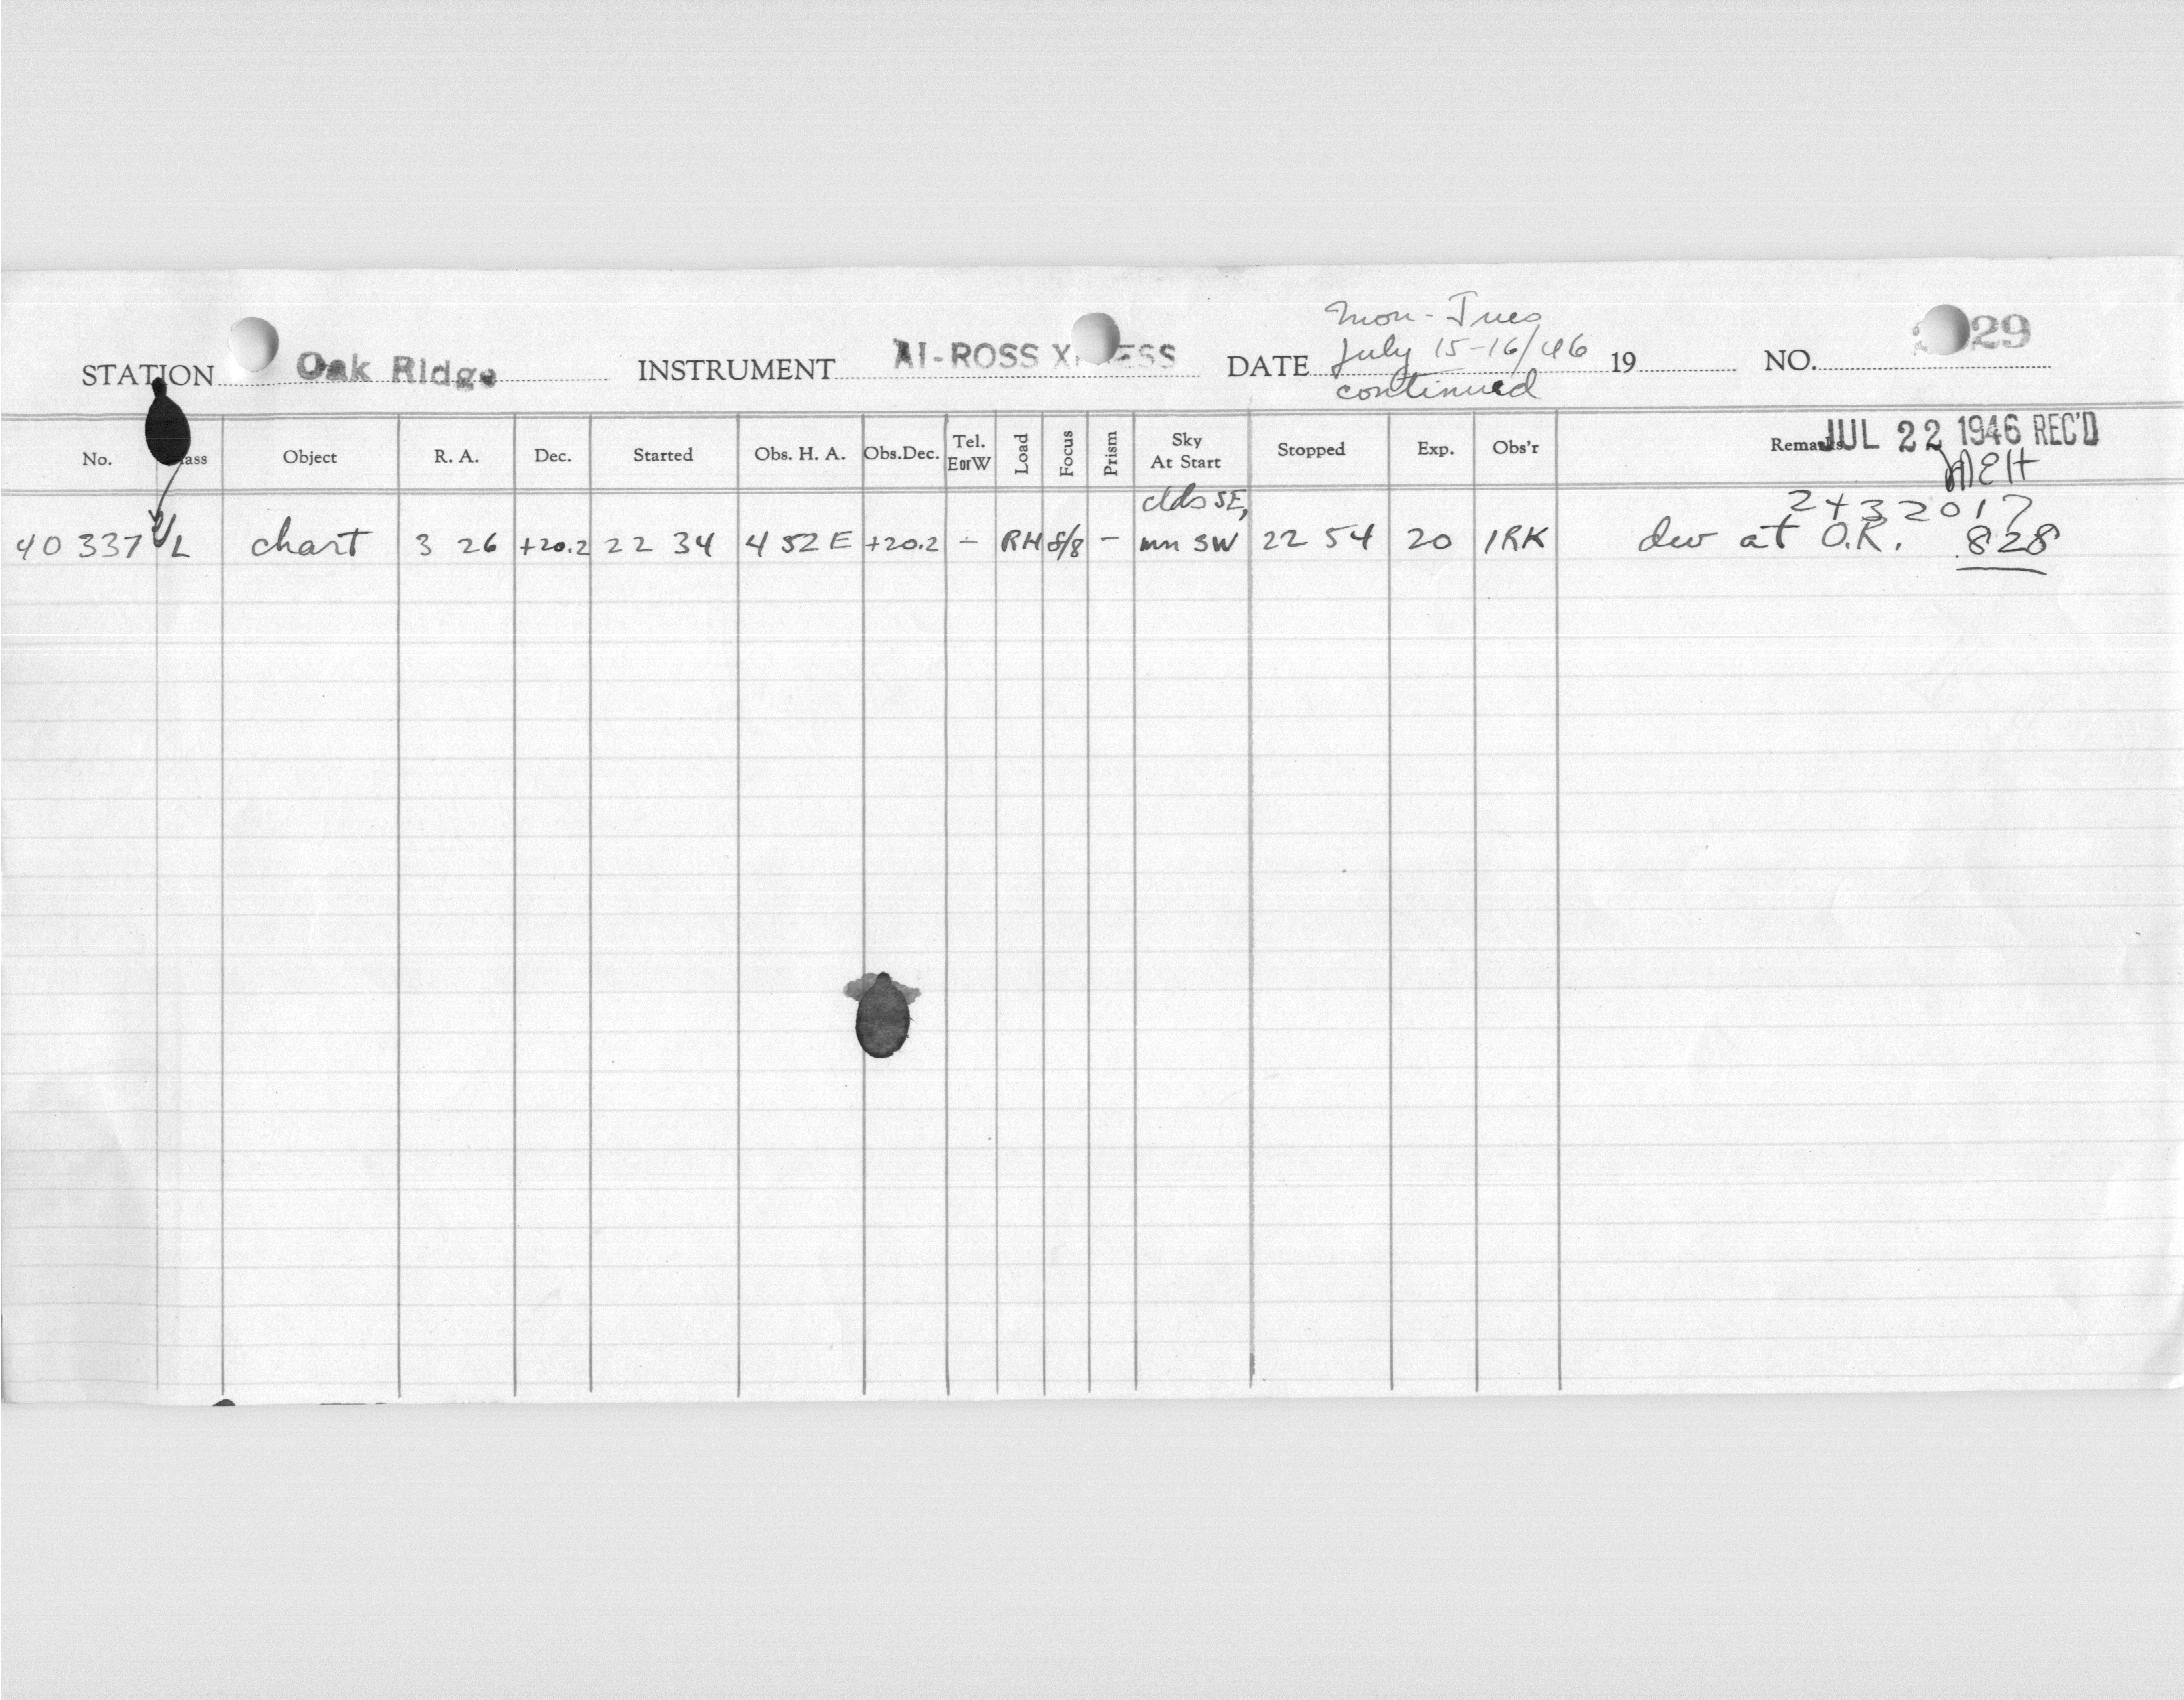 Mon-Tues
STATION Oak Ridge INSTRUMENT AI-ROSS X ESS DATE July 15-16/46 19 NO. 29
continued
No. Class Object R. A. Dec. Started Obs. H. A. Obs.Dec. Tel. E or W Load Focus Prism Sky At Start Stopped Exp. Obs'r Remarks JUL 22 1946 REC'D
MEH
clds SE, 2432017
40337 L chart 3 26 +20.2 22 34 4 52 E +20.2 - RH 8/8 - mn SW 22 54 20 IRK dew at O.R. 828